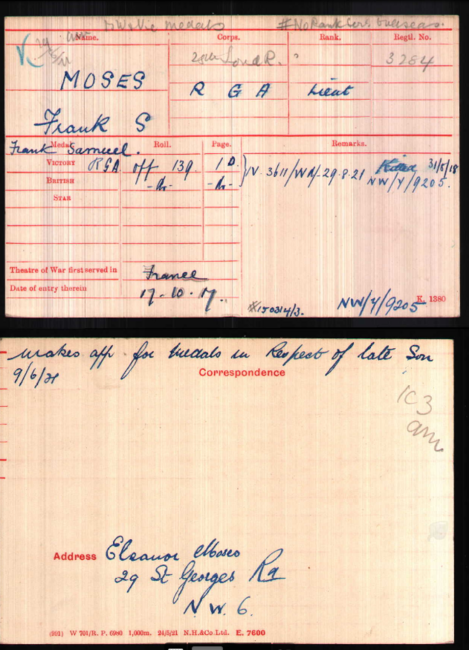 Medals # No Rank Cert. Overseas.
Name. Corps. Rank. Regtl. No.
Lond R. " 3284
MOSES R G A Lieut
Frank S
Frank Samuel.
Medal. Roll. Page. Remarks.
VICTORY RGA Off 139 10 IV. 3611/WD/. 29.8.21 31/5/18
BRITISH -do- -do- NW/4/9205.
STAR
Theatre of War first served in France
Date of entry therein 17-10-17.
NW/4/9205 E. 1380
Makes app. for Medals in Respect of late Son
9/6/21
Correspondence
Address Eleanor Moses
29 St Georges Rd
N.W. 6.
(801) W 791/R. P. 6980 1,000m. 24/5/21 N.H.&Co.Ltd. E. 7600